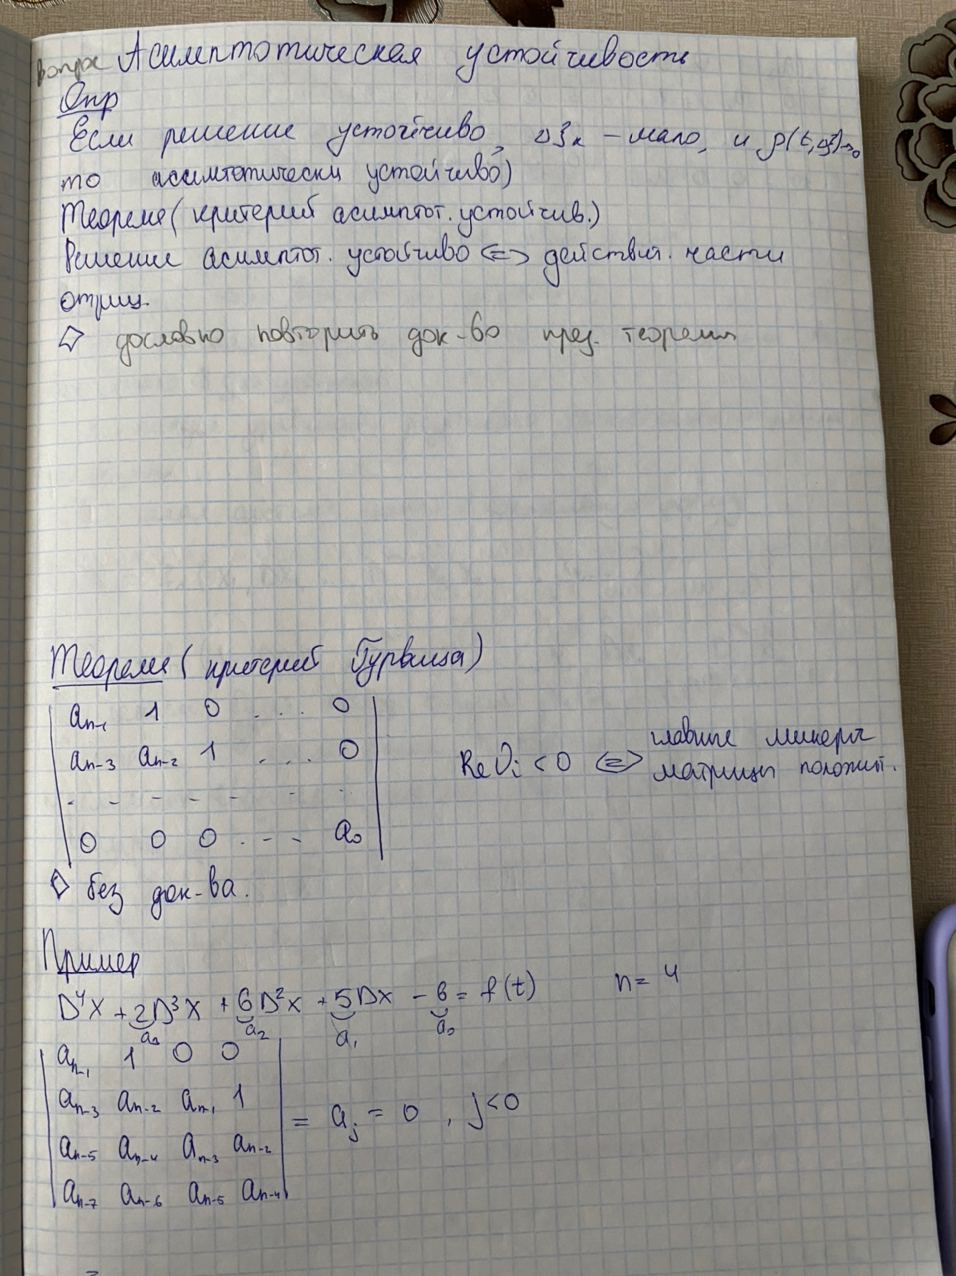 вопрос Асимптотическая устойчивость
Опр
Если решение устойчиво, ∆ξₖ – мало, и ρ(t, ∆ξ)→0
то асимтотически устойчиво)
Теорема (критерий асимптот. устойчив.)
Решение асимптот. устойчиво <=> действит. части
отриц.
дословно повторить док-во пред. теоремы
Теорема (критерий Гурвица)
aₙ₋₁ 1 0 . . . 0
aₙ₋₃ aₙ₋₂ 1 . . . 0
- - - - - - - -
0 0 0 . - - a₀
Re λᵢ < 0 <=> главные миноры
матрицы положит.
без док-ва.
Пример
D⁴x + 2D³x + 6D²x + 5Dx - 6 = f(t) n = 4
a₃ a₂ a₁ a₀
aₙ₋₁ 1 0 0
aₙ₋₃ aₙ₋₂ aₙ₋₁ 1
aₙ₋₅ aₙ₋₄ aₙ₋₃ aₙ₋₂ = aⱼ = 0 , j<0
aₙ₋₇ aₙ₋₆ aₙ₋₅ aₙ₋₄